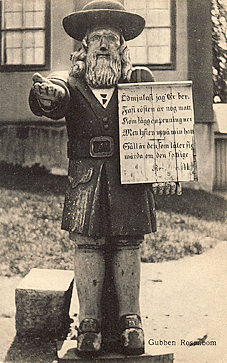 Ödmjukast jag Er ber,
Fast rösten är nog matt
Kom lägg en penning ner
Men lyften uppå min hatt
Säll är den som låter sig
vårda om den fattige
Gubben Rosenbom